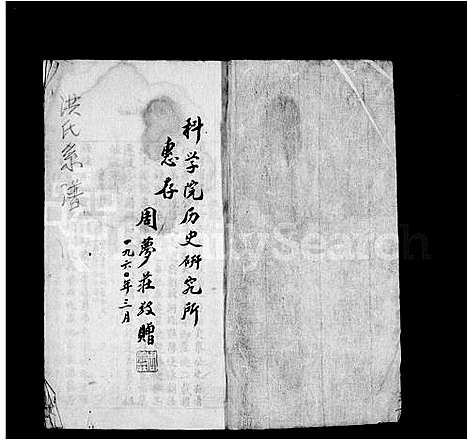 科学院历史研究所
惠存
周夢莊敬贈
一九六〇年三月
洪氏系譜
FamilySearch